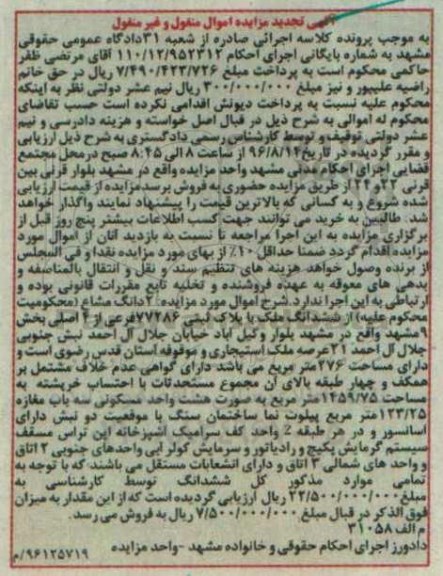 آگهی تجدید مزایده اموال منقول و غیر منقول
به موجب پرونده کلاسه اجرائی صادره از شعبه ۳۱دادگاه عمومی حقوقی
مشهد به شماره بایگانی اجرای احکام ۱۱۰/۱۲/۹۵۲۳۱۲ آقای مرتضی ظفر
حاکمی محکوم است به پرداخت مبلغ ۷/۴۹۰/۴۲۳/۷۲۶ ریال در حق خانم
راضیه علیپور و نیز مبلغ ۳۰۰/۰۰۰/۰۰۰ ریال نیم عشر دولتی نظر به اینکه
محکوم علیه نسبت به پرداخت دیونش اقدامی نکرده است حسب تقاضای
محکوم له اموالی به شرح ذیل در قبال اصل خواسته و هزینه دادرسی و نیم
عشر دولتی توقیف و توسط کارشناس رسمی دادگستری به شرح ذیل ارزیابی
و مقرر گردیده در تاریخ ۹۶/۸/۱۴ از ساعت ۸ الی ۸:۴۵ صبح درمحل مجتمع
قضایی اجرای احکام مدنی مشهد واحد مزایده واقع در مشهد بلوار قرنی بین
قرنی ۲۲و۲۴ از طریق مزایده حضوری به فروش برسدمزایده از قیمت ارزیابی
شده شروع و به کسانی که بالاترین قیمت را پیشنهاد نمایند واگذار خواهد
شد. طالبین به خرید می توانند جهت کسب اطلاعات بیشتر پنج روز قبل از
برگزاری مزایده به این اجرا مراجعه تا نسبت به بازدید آنان از اموال مورد
مزایده اقدام گردد ضمنا حداقل ۱۰٪ از بهای مورد مزایده نقدا و فی المجلس
از برنده وصول خواهد هزینه های تنظیم سند و نقل و انتقال بالمناصفه و
بدهی های معوقه به عهده فروشنده و تخلیه تابع مقررات قانونی بوده و
ارتباطی به این اجرا ندارد.شرح اموال مورد مزایده:۲دانگ مشاع (محکومیت
محکوم علیه) از ششدانگ ملک با پلاک ثبتی ۷۷۲۸۶فرعی از ۴ اصلی بخش
۹مشهد واقع در مشهد بلوار وکیل آباد خیابان جلال آل احمد نبش جنوبی
جلال آل احمد ۲۱عرصه ملک استیجاری و موقوفه آستان قدس رضوی است و
دارای مساحت ۳۷۶متر مربع می باشد دارای گواهی عدم خلاف مشتمل بر
همکف و چهار طبقه بالای آن مجموع مستحدثات با احتساب خرپشته به
مساحت ۱۴۵۹/۷۵متر مربع به صورت هشت واحد مسکونی سه باب مغازه
۱۲۳/۲۵متر مربع پیلوت نما ساختمان سنگ با موقعیت دو نبش دارای
آسانسور و در هر طبقه ۲ واحد کف سرامیک آشپزخانه اپن تراس مسقف
سیستم گرمایش پکیج و رادیاتور و سرمایش کولر آبی واحدهای جنوبی ۲ اتاق
و واحد های شمالی ۳ اتاق و دارای انشعابات مستقل می باشند که با توجه به
تمامی موارد مذکور کل ششدانگ توسط کارشناسی به
مبلغ۲۲/۵۰۰/۰۰۰/۰۰۰ ریال ارزیابی گردیده است که از این مقدار به میزان
فوق الذکر در قبال مبلغ ۷/۵۰۰/۰۰۰/۰۰۰ ریال به فروش می رسد.
م الف ۳۱۰۵۸
دادورز اجرای احکام حقوقی و خانواده مشهد -واحد مزایده
۹۶۱۲۵۷۱۹/م